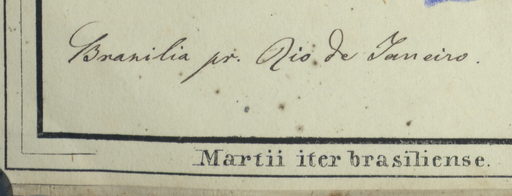 Brasilia pr. Rio de Janeiro.
Martii iter brasiliense.